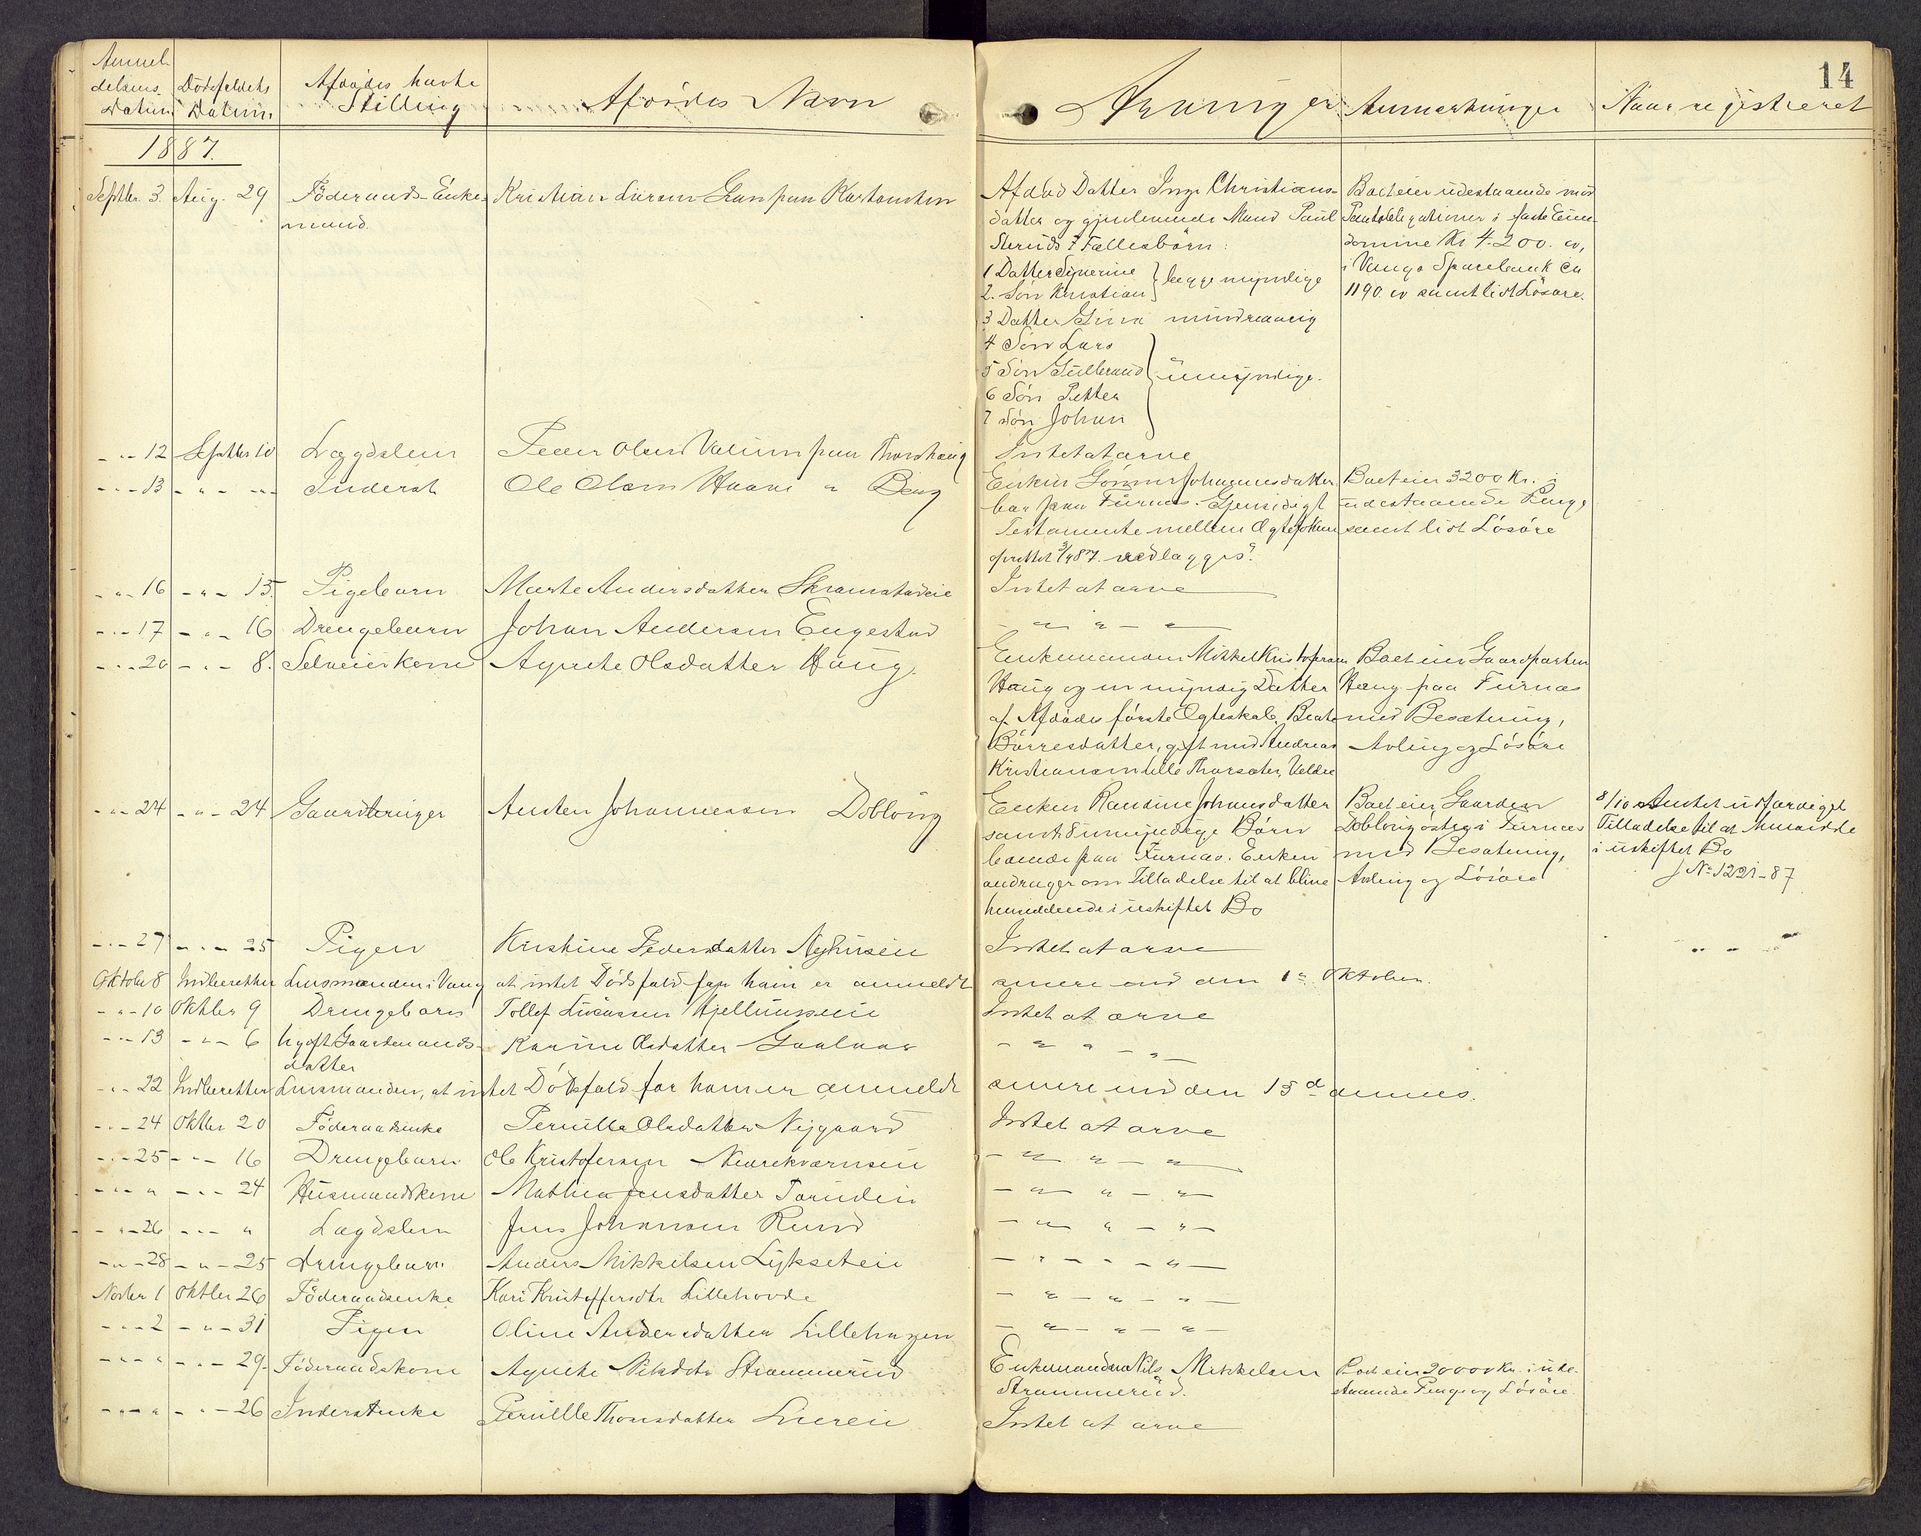 14
Anmel-
delsens
Datum
Dødsfaldets
Datum
Afdødes havte
Stilling
Afdødes Navn
Arvinger
Anmærkninger
Naar registreret
1887.
Septbr. 3. Aug. 29 Föderaads-Enke- Kristian Larsen Gran paa
mand.
Afdød Datter Inge Christians-
datter og gjenlevende Mand Paul
Steruds 7 Fællesbörn:
1 Datter Syverine
2. Søn Kristian } begge myndige
3 Datter Gina mindreaarig
4 Søn Lars
5 Søn Gulbrand } umyndige.
6 Søn Petter
7 Søn Johan
Boet eier udestaaende mod
Pantobligationer i faste Eien-
domme Kr 4.200. og
i Vangs Sparebank ca
1190. og samt lidt Løsøre.
- " - 12 Septbr 10 Lægdslem Peder Olsen Valum paa Thorshaug Intet at arve
- " - 13 - " - " - Inderst Ole Olsen Haave " Berg
Enken Gønner Johannesdatter
bor paa Furnæs. Gjensidigt
Testamente mellem Ægtefolkene
oprettet 3/9 87. vedlægges.
Boet eier 3200 Kr. i
udestaaende Penge
samt lidt Løsøre
- " - 16 - " - 15. Pigebarn Marte Andersdatter Skramstadeie Intet at arve
- " - 17 - " - 16 Drengebarn Johan Andersen Engestad - " - " - " -
- " - 20 - " - 8. Selveierkone Agnethe Olsdatter Haug.
Enkemanden Mikkel Kristofersen
Haug og en myndig Datter
af Afdødes første Ægteskab, Beate
Børresdatter, gift med Andreas
Kristiansen Lille Thorsæter, Veldre
Boet eier Gaardparten
Haug paa Furnæs
med Besætning,
Avling og Løsøre
- " - 24 - " - 24 Gaardbruger Anders Johannessen Doblöug
Enken Randine Johansdatter
samt 8 umyndige Börn
boende paa Furnæs. Enken
andrager om Tilladelse til at blive
hensiddende i uskiftet Bo
Boet eier Gaarden
Doblöug östre i Furnæs
med Besætning,
Avling og Løsøre
8/10 Amtet udfærdiget
Tilladelse til at hensidde
i uskiftet Bo
J No 1221-87
- " - 27 - " - 25 Pigen Kirstine Pedersdatter Nyhuseie Intet at arve - " -
Oktober 8 Indberetter Lensmanden i Vang at intet Dødsfald for ham er anmeldt
senere end den 1ste Oktober.
- " - 10 Oktbr 9 Drengebarn Tollef Hjellumseie Intet at arve
- " - 13 - " - 6 Ugift Gaardmands-
datter
Karine Olsdatter Gaalaas - " - " - " -
- " - 22 Indberetter Lensmanden, at intet Dödsfald for ham er anmeldt
senere end den 15d dennes.
- " - 24 Oktbr 20 Föderaadsenke Pernille Olsdatter Nygaard Intet at arve
- " - 25 - " - 16 Drengebarn Ole Kristofersen Nedrekværnseie - " - " - " -
- " - " - " - 24 Husmandskone Mathea Jensdatter - " - " - " -
- " - 26 - " - " Lægdslem Jens Johansen Rund - " - " - " -
- " - 28 - " - 25 Drengebarn Anders Mikkelsen Lykseteie - " - " - " -
Novbr 1 Oktbr 26 Föderaadsenke Kari Kristoffersdtr Lillehovde - " - " - " -
- " - 2 - " - 31 Pigen Oline Andersdatter Lillehagen - " - " - " -
- " - " - " - 29. Föderaadskone Agnethe Nilsdtr Strømmerud
Enkemanden Nils Mikkelsen
Strømmerud.
Boet eier 20000 Kr. i ude-
staaende Penge og Løsøre.
- " - " - " - 26 Inderstenke Pernille Thomsdatter Liereie Intet at arve